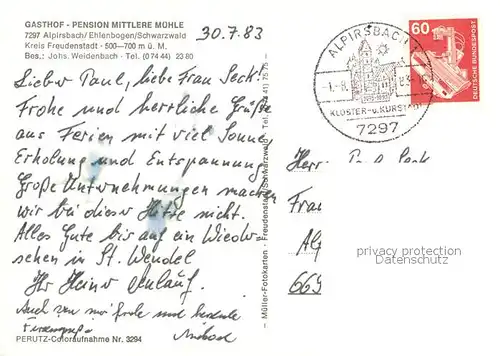 GASTHOF - PENSION MITTLERE MÜHLE
7297 Alpirsbach/Ehlenbogen/Schwarzwald
Kreis Freudenstadt - 500—700 m ü. M.
Bes.: Johs. Weidenbach - Tel. (0 74 44) 23 80
30.7.83
Lieber Paul, liebe Frau Seck!
Frohe und herrliche Grüße
aus Ferien mit viel Sonne,
Erholung und Entspannung.
Große Unternehmungen machen
wir bei dieser Hitze nicht.
Alles Gute bis auf ein Wieder-
sehen in St. Wendel
Ihr Heinz
Auch von mir frohe und
PERUTZ-Coloraufnahme Nr. 3294
Müller-Fotokarten · Freudenstadt/Schwarzwald · Tel.
ALPIRSBACH
KLOSTER-u. KURSTADT
7297
60
DEUTSCHE BUNDESPOST
Herr
Frau
Alp
669
privacy protection
Datenschutz